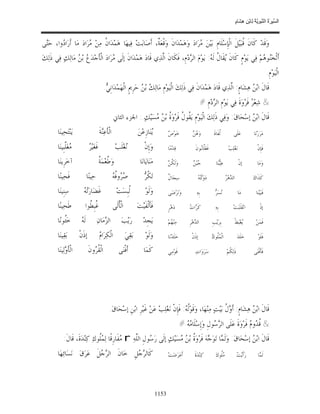 السّيرَة النّبَويّة لابن هشام
وَقَدْ كَانَ قُبَيْلَ الْإِسْلَامِ بَيْنَ مُرَادَ وَهَمْدَانَ وَقْعَةٌ، أَصَابَتْ فِيهَا هَمْدَانُ مِنْ مُرَادَ مَا أَرَادُوا، حَتَّى
أَثْخَنُوهُمْ فِي يَوْمٍ كَانَ يُقَالُ لَهُ: يَوْمُ الرَّدْمِ، فَكَانَ الَّذِي قَادَ هَمْدَانَ إِلَى مُرَادَ الْأَجْدَعُ بْنُ مَالِكٍ فِي ذَلِكَ
الْيَوْمِ.
قَالَ ابْنُ هِشَامٍ: الَّذِي قَادَ هَمْدَانَ فِي ذَلِكَ الْيَوْمِ مَالِكُ بْنُ حَرِيمٍ الْهَمْدَانِيُّ
شِعْرُ فَرْوَةَ فِي يَوْمِ الرَّدْمِ
قَالَ ابْنُ إِسْحَاقَ: وَفِي ذَلِكَ الْيَوْمِ يَقُولُ فَرْوَةُ بْنُ مُسَيْكٍ: الجزء الثاني
مَرَرْنَا عَلَى لُفَاةَ وَهُنَّ خُوصٌ يُنَازِعْنَ الْأَعِنَّةَ يَنْتَحِينَا
فَإِنْ نَغْلِبْ فَغَلَّابُونَ قِدْمًا وَإِنْ نُغْلَبْ فَغَيْرُ مُغَلَّبِينَا
وَمَا إِنْ طِبُّنَا جُبْنٌ وَلَكِنْ مَنَايَانَا وَطُعْمَةُ آخَرِينَا
كَذَاكَ الدَّهْرُ دَوْلَتُهُ سِجَالٌ تَكُرُّ صُرُوفُهُ حِينًا فَحِينَا
فَبَيْنَا مَا نُسَرُّ بِهِ وَنَرْضَى وَلَوْ لُبِسَتْ غَضَارَتُهُ سِنِينَا
إِذْ انْقَلَبَتْ بِهِ كَرَّاتُ دَهْرٍ فَأَلْفَيْتَ الْأُلَى غُبِطُوا طَحِينَا
فَمَنْ يُغْبَطْ بِرَيْبِ الدَّهْرِ مِنْهُمْ يَجِدْ رَيْبَ الزَّمَانِ لَهُ خَئُونَا
فَلَوْ خَلَدَ الْمُلُوكُ إذَنْ خَلَدْنَا وَلَوْ بَقِيَ الْكِرَامُ إذَنْ بَقِينَا
فَأَفْنَى ذَلِكُمْ سَرَوَاتِ قَوْمِي كَمَا أَفْنَى الْقُرُونَ الْأَوَّلِينَا
قَالَ ابْنُ هِشَامٍ: أَوَّلُ بَيْتٍ مِنْهَا، وَقَوْلُهُ: فَإِنْ نَغْلِبْ عَنْ غَيْرِ ابْنِ إِسْحَاقَ.
قُدُومُ فَرْوَةَ عَلَى الرَّسُولِ وَإِسْلَامُهُ
قَالَ ابْنُ إِسْحَاقَ: وَلَمَّا تَوَجَّهَ فَرْوَةُ بْنُ مُسَيْكٍ إِلَى رَسُولِ اللَّهِ r مُفَارِقًا لِمُلُوكِ كِنْدَةَ، قَالَ:
لَمَّا رَأَيْتُ مُلُوكَ كِنْدَةَ أَعْرَضَتْ كَالرِّجْلِ خَانَ الرِّجْلَ عِرْقُ نَسَائِهَا
1153